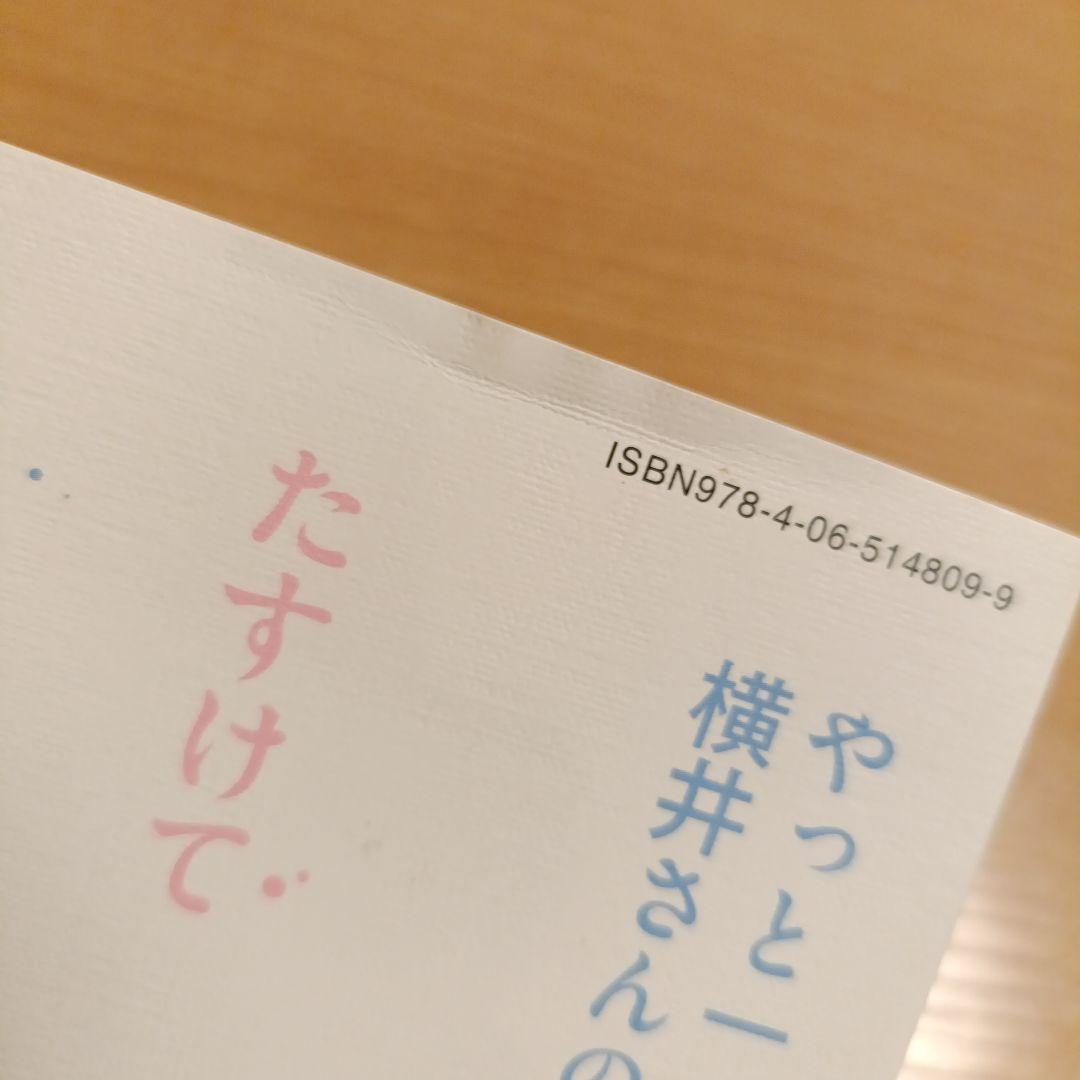 ISBN978-4-06-514809-9
やっと一
横井さんの
たすけて